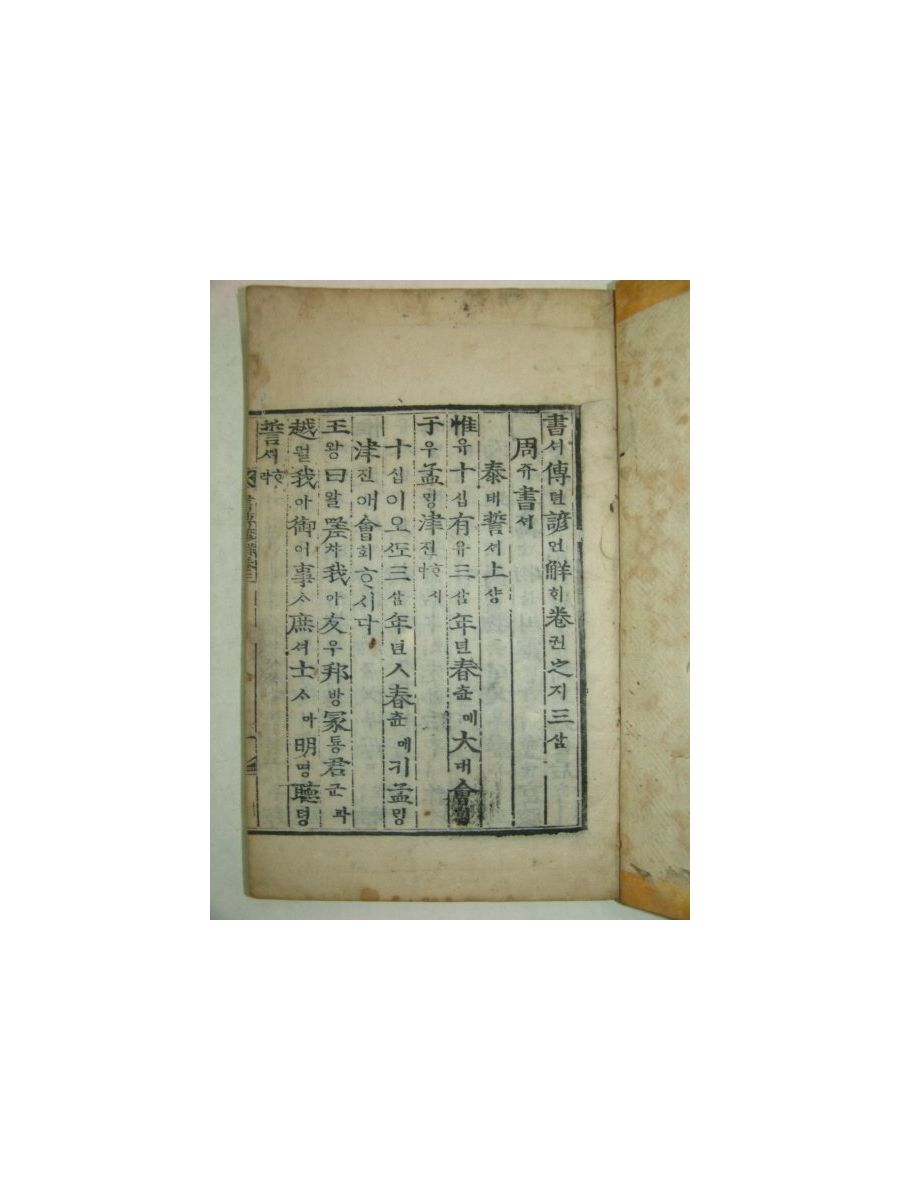 書셔傳뎐諺언觧ᄒᆡ卷권之지三삼
周쥬書셔
泰태誓셔上샹
惟유十십有유三삼年년春츈애大대會회
于우孟ᄆᆡᆼ津진ᄒᆞ시다
十십이오ᄯᅩ三삼年년人春츈애긔孟ᄆᆡᆼ
津진애會회ᄒᆞ시다
王왕曰왈嗟차我아友우邦방冢통君군과
越월我아御어事ᄉᆞ庶셔士ᄉᆞ아明명聽텽
誓셔ᄒᆞ라